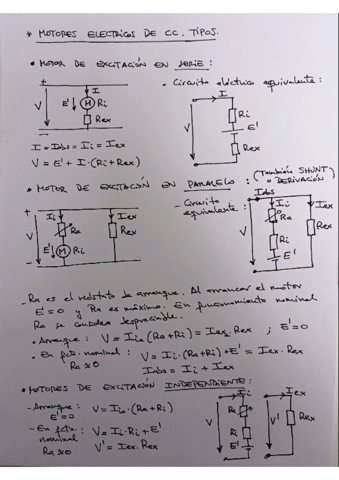 * MOTORES ELECTRICOS DE CC. TIPOS.
• MOTOR DE EXCITACIÓN EN SERIE:
- Circuito eléctrico equivalente:
+
I
V
E'
M
Ri
Rex
-
I
V
Ri
E'
Rex
I = Iabs = Ii = Iex
V = E' + I·(Ri+Rex)
• MOTOR DE EXCITACIÓN EN PARALELO: (También SHUNT)
o DERIVACIÓN
- Circuito
equivalente:
+
Ii
Iex
V
Ra
E'
M
Ri
Rex
-
Iabs
Ii
Iex
V
Ra
Ri
E'
Rex
- Ra es el reóstato de arranque. Al arrancar el motor
E'=0 y Ra es máxima. En funcionamiento nominal
Ra se considera despreciable.
• Arranque: V = Iia(Ra+Ri) = Iexa·Rex ; E'=0
• En fcto. nominal: V = Ii·(Ra+Ri)+E' = Iex·Rex
Ra≈0
Iabs = Ii + Iex
• MOTORES DE EXCITACIÓN INDEPENDIENTE:
- Arranque: V = Iia·(Ra+Ri)
E'=0
- En fcto. V = Ii·Ri+E'
nominal
Ra≈0 V' = Iex·Rex
Ii
V
Ra
Ri
E'
Iex
V'
Rex